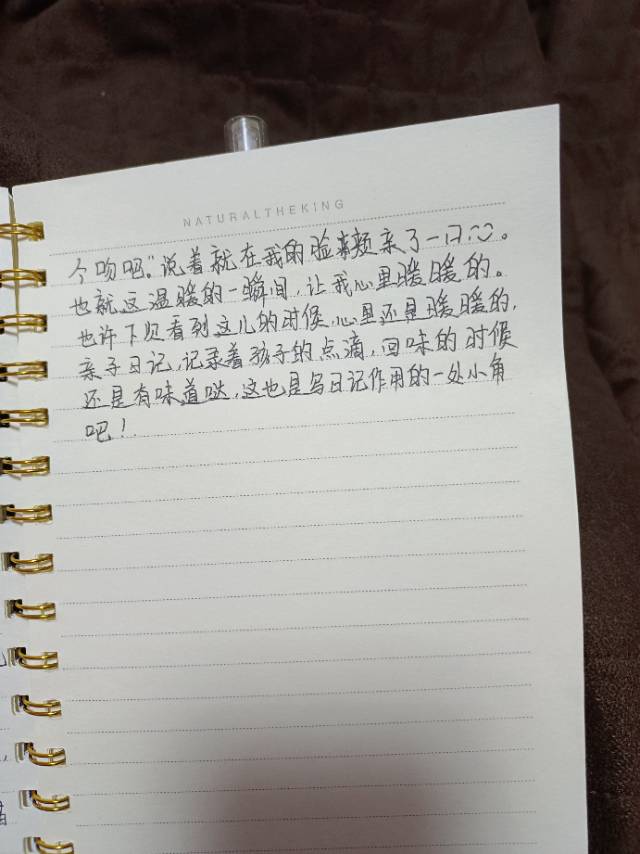 NATURALTHEKING
个吻吧。"说着就在我的脸颊亲了一口。
也就这温暖的一瞬间，让我心里暖暖的。
也许下次看到这儿的时候，心里还是暖暖的，
亲子日记，记录着孩子的点滴，回味的时候
还是有味道哒，这也是写日记作用的一处小角
吧！